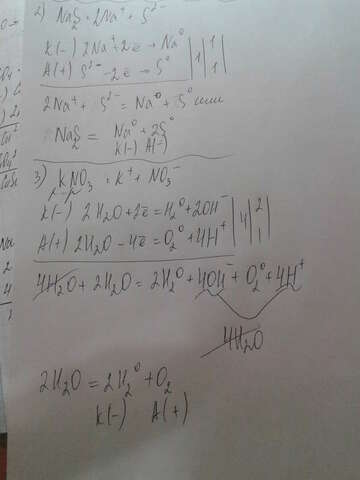 2) Na₂S = 2Na⁺ + S²⁻
K(-) 2Na⁺ + 2ē → Na⁰ | 1 | 1
A(+) S²⁻ - 2ē → S⁰ | 1 | 1
2Na⁺ + S²⁻ = Na⁰ + S⁰
Na₂S = Na⁰ + 2S⁰
K(-) A(-)
3) KNO₃ = K⁺ + NO₃⁻
K(-) 2H₂O + 2ē = H₂⁰ + 2OH⁻ | 4 | 2
A(+) 2H₂O - 4ē = O₂⁰ + 4H⁺ | 1
4H₂O + 2H₂O = 2H₂⁰ + 4OH⁻ + O₂⁰ + 4H⁺
4H₂O
2H₂O = 2H₂⁰ + O₂
K(-) A(+)